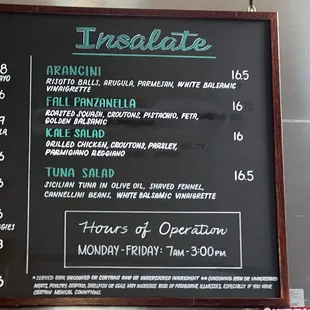 Insalate
ARANCINI 16.5
RISOTTO BALLS, ARUGULA, PARMESAN, WHITE BALSAMIC
VINAIGRETTE
FALL PANZANELLA 16
ROASTED SQUASH, CROUTONS, PISTACHIO, FETA,
GOLDEN BALSAMIC
KALE SALAD 16
GRILLED CHICKEN, CROUTONS, PARSLEY,
PARMIGIANO REGGIANO
TUNA SALAD 16.5
SICILIAN TUNA IN OLIVE OIL, SHAVED FENNEL,
CANNELLINI BEANS, WHITE BALSAMIC VINAIGRETTE
Hours of Operation
MONDAY-FRIDAY: 7AM-3:00PM
* SERVED RAW, UNDERCOOKED OR CONTAINS RAW OR UNDERCOOKED INGREDIENT ** CONSUMING RAW OR UNDERCOOKED
MEATS, POULTRY, SEAFOOD, SHELLFISH OR EGGS MAY INCREASE RISK OF FOODBORNE ILLNESSES, ESPECIALLY IF YOU HAVE
CERTAIN MEDICAL CONDITIONS.